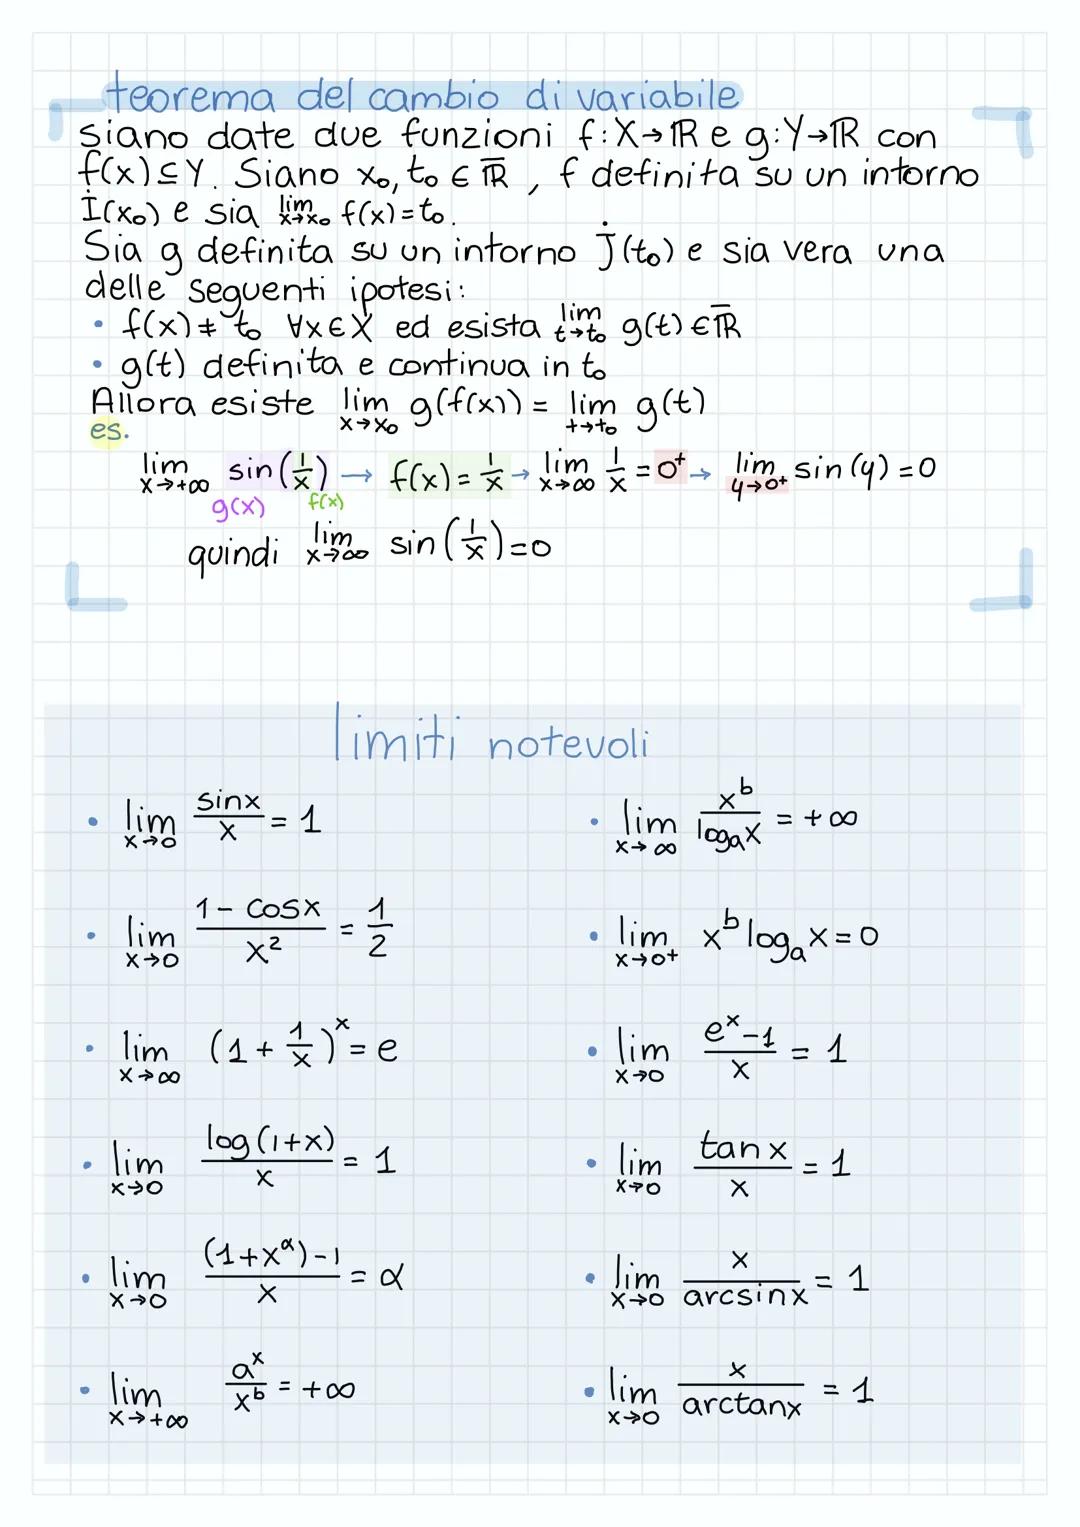 teorema del cambio di variabile
siano date due funzioni f: X→ℝ e g: Y→ℝ con
f(x)⊆Y. Siano x₀, t₀ ∈ ℝ̅ , f definita su un intorno
I(x₀) e sia lim x→x₀ f(x)=t₀.
Sia g definita su un intorno J(t₀) e sia vera una
delle seguenti ipotesi:
• f(x)≠t₀ ∀x∈X ed esista lim t→t₀ g(t) ∈ℝ̅
• g(t) definita e continua in t₀
Allora esiste lim x→x₀ g(f(x)) = lim t→t₀ g(t)
es.
lim x→+∞ sin(1/x) → f(x)=1/x → lim x→∞ 1/x =0⁺ → lim y→0⁺ sin(y)=0
g(x) f(x)
quindi lim x→∞ sin(1/x)=0
limiti notevoli
• lim x→0 sinx/x = 1
• lim x→∞ xᵇ/logₐx = +∞
• lim x→0 (1- cosx)/x² = 1/2
• lim x→0+ xᵇ logₐx=0
• lim x→∞ (1+1/x)ˣ= e
• lim x→0 (eˣ-1)/x = 1
• lim x→0 log(1+x)/x = 1
• lim x→0 tanx/x = 1
• lim x→0 ((1+x^α)-1)/x = α
• lim x→0 x/arcsinx = 1
• lim x→+∞ aˣ/xᵇ = +∞
• lim x→0 x/arctanx = 1